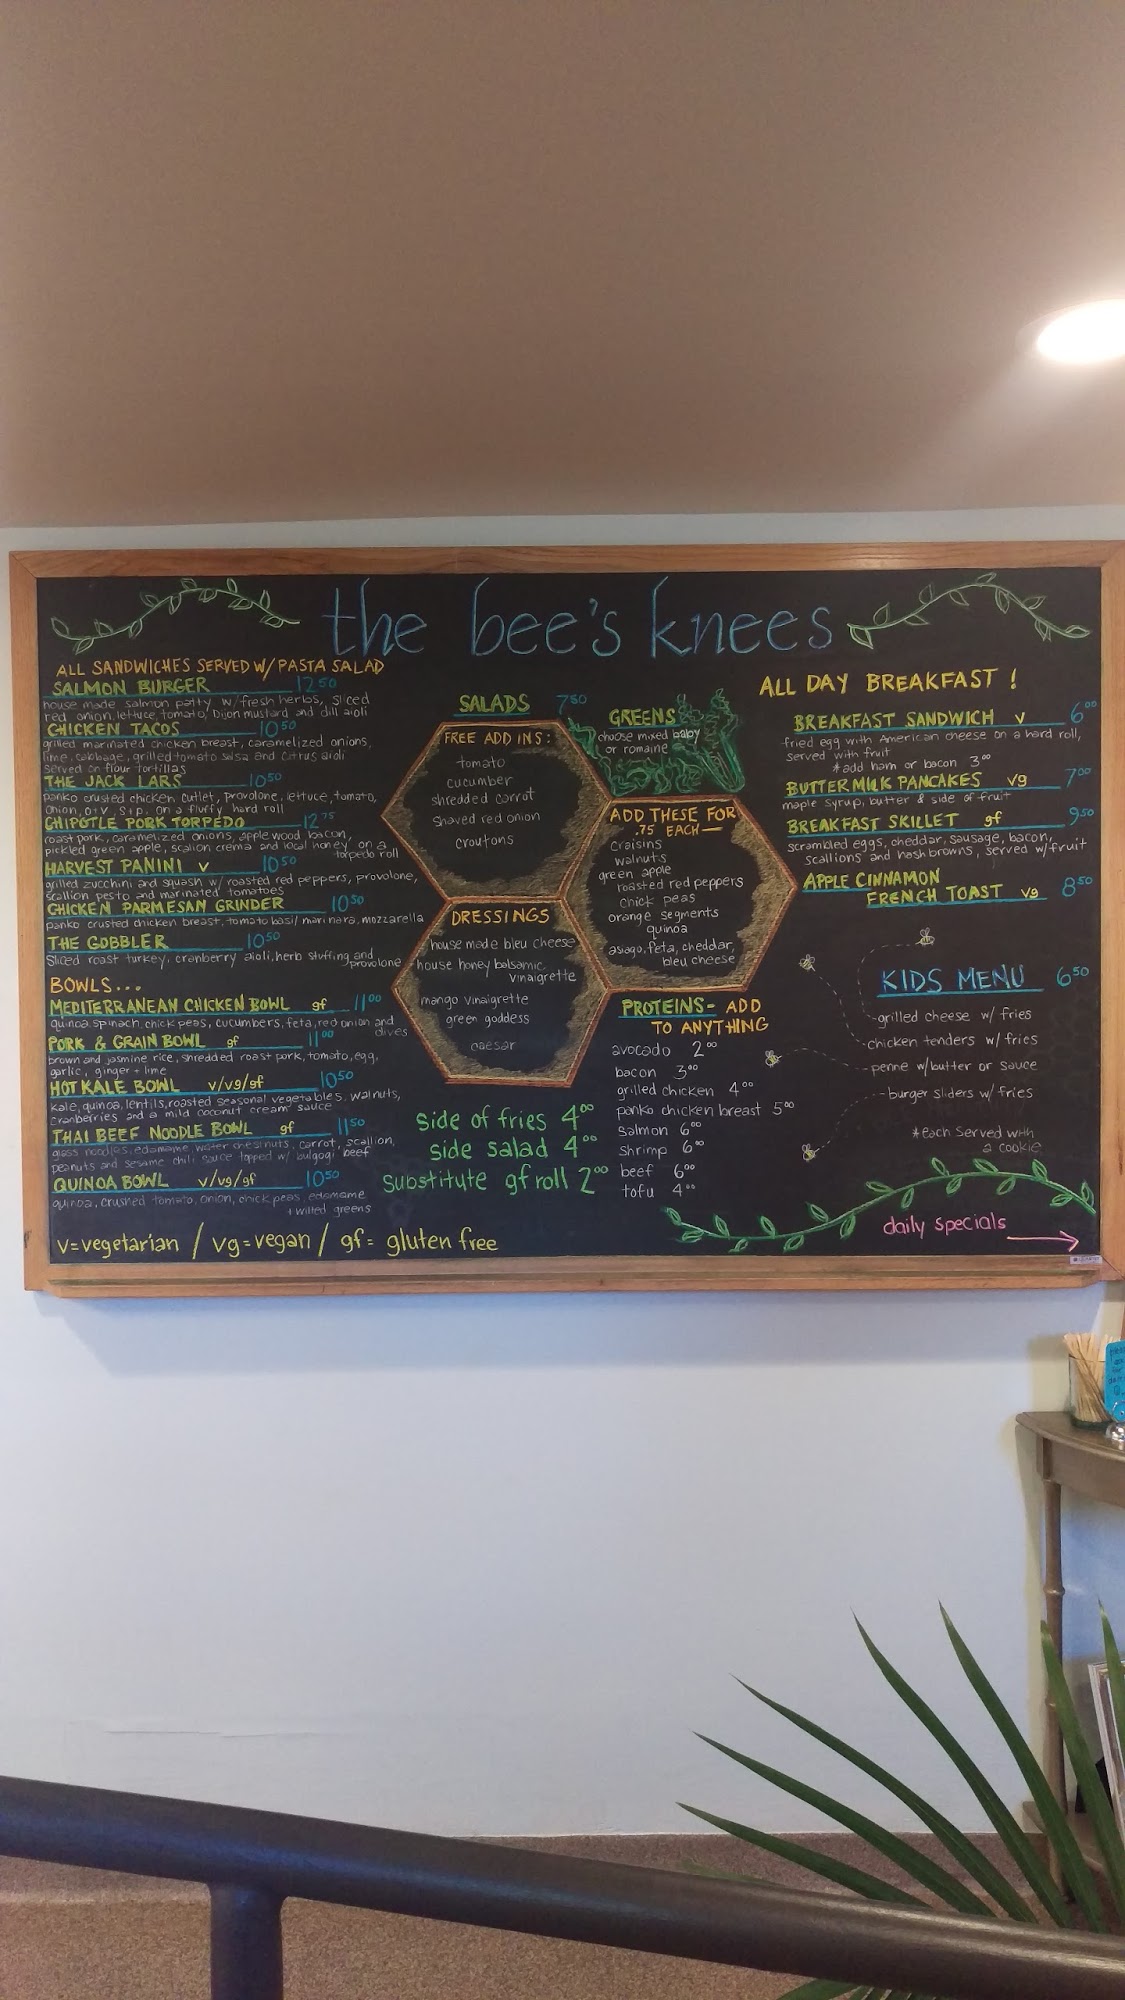 the bee's knees
ALL SANDWICHES SERVED W/ PASTA SALAD
SALMON BURGER 12 50
house made salmon patty w/ fresh herbs, sliced
red onion, lettuce, tomato, Dijon mustard and dill aioli
CHICKEN TACOS 10 50
grilled marinated chicken breast, caramelized onions,
lime, cabbage, grilled tomato salsa and citrus aioli
served on flour tortillas
THE JACK LARS 10 50
panko crusted chicken cutlet, provolone, lettuce, tomato,
onion, o+v, s+p, on a fluffy hard roll
CHIPOTLE PORK TORPEDO 12 75
roast pork, caramelized onions, apple wood bacon,
pickled green apple, scalion crema and local honey on a
torpedo roll
HARVEST PANINI v 10 50
grilled zucchini and squash w/ roasted red peppers, provolone,
scallion pesto and marinated tomatoes
CHICKEN PARMESAN GRINDER 10 50
panko crusted chicken breast, tomato basil marinara, mozzarella
THE GOBBLER 10 50
Sliced roast turkey, cranberry aioli, herb stuffing and
provolone
BOWLS...
MEDITERRANEAN CHICKEN BOWL gf 11 00
quinoa, spinach, chick peas, cucumbers, feta, red onion and
olives
PORK & GRAIN BOWL gf 11 00
brown and jasmine rice, shredded roast pork, tomato, egg,
garlic, ginger + lime
HOT KALE BOWL v/vg/gf 10 50
kale, quinoa, lentils, roasted seasonal vegetables, walnuts,
cranberries and a mild coconut cream sauce
THAI BEEF NOODLE BOWL gf 11 50
glass noodles, edamame, water chestnuts, carrot, scallion,
peanuts and sesame chili sauce topped w/ bulgogi beef
QUINOA BOWL v/vg/gf 10 50
quinoa, crushed tomato, onion, chick peas, edamame
+ wilted greens
v=vegetarian / vg=vegan / gf= gluten free
SALADS 7 50
FREE ADD INS:
tomato
cucumber
shredded carrot
shaved red onion
croutons
GREENS
choose mixed baby
or romaine
ADD THESE FOR
.75 EACH—
craisins
walnuts
green apple
roasted red peppers
chick peas
orange segments
quinoa
asiago, feta, cheddar,
bleu cheese
DRESSINGS
house made bleu cheese
house honey balsamic
vinaigrette
mango vinaigrette
green goddess
caesar
PROTEINS- ADD
TO ANYTHING
avocado 2 00
bacon 3 00
grilled chicken 4 00
panko chicken breast 5 00
salmon 6 00
shrimp 6 00
beef 6 00
tofu 4 00
side of fries 4 00
side salad 4 00
substitute gf roll 2 00
ALL DAY BREAKFAST !
BREAKFAST SANDWICH v 6 00
fried egg with American cheese on a hard roll,
served with fruit
*add ham or bacon 3 00
BUTTERMILK PANCAKES vg 7 00
maple syrup, butter & side of fruit
BREAKFAST SKILLET gf 9 50
scrambled eggs, cheddar, sausage, bacon,
scallions and hashbrowns, served w/ fruit
APPLE CINNAMON
FRENCH TOAST vg 8 50
KIDS MENU 6 50
grilled cheese w/ fries
chicken tenders w/ fries
penne w/ butter or sauce
burger sliders w/ fries
*each served with
a cookie
daily specials